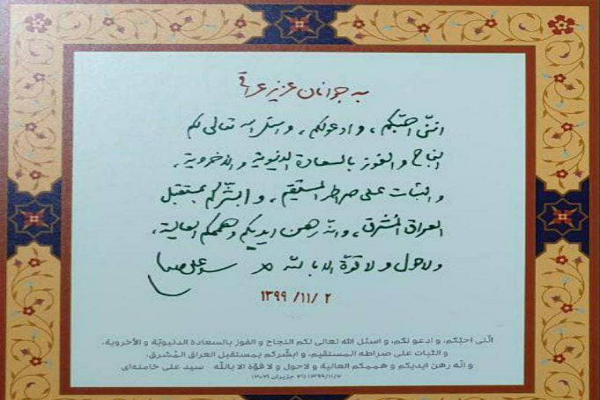 به جوانان عزیز عراق
اننی احبّکم، و ادعولکم، و اسئل الله تعالی لکم
النجاح و الفوز بالسعادة الدنیویة و الأخرویة،
و الثبات علی صراطه المستقیم، و ابشّرکم بمستقبل
العراق المُشرق، و انّه رهن ایدیکم و هممکم العالیة،
و لاحول و لا قوّة الا بالله سید علی خامنه‌ای
۱۳۹۹/۱۱/۲
انّنی احبّکم، و ادعو لکم، و اسئل الله تعالی لکم النجاح و الفوز بالسعادة الدنیویّة و الأخرویة،
و الثبات علی صراطه المستقیم، و ابشّرکم بمستقبل العراق المُشرق،
و انّه رهن ایدیکم و هممکم العالیة و لاحول و لا قوّة الا بالله سید علی خامنه‌ای